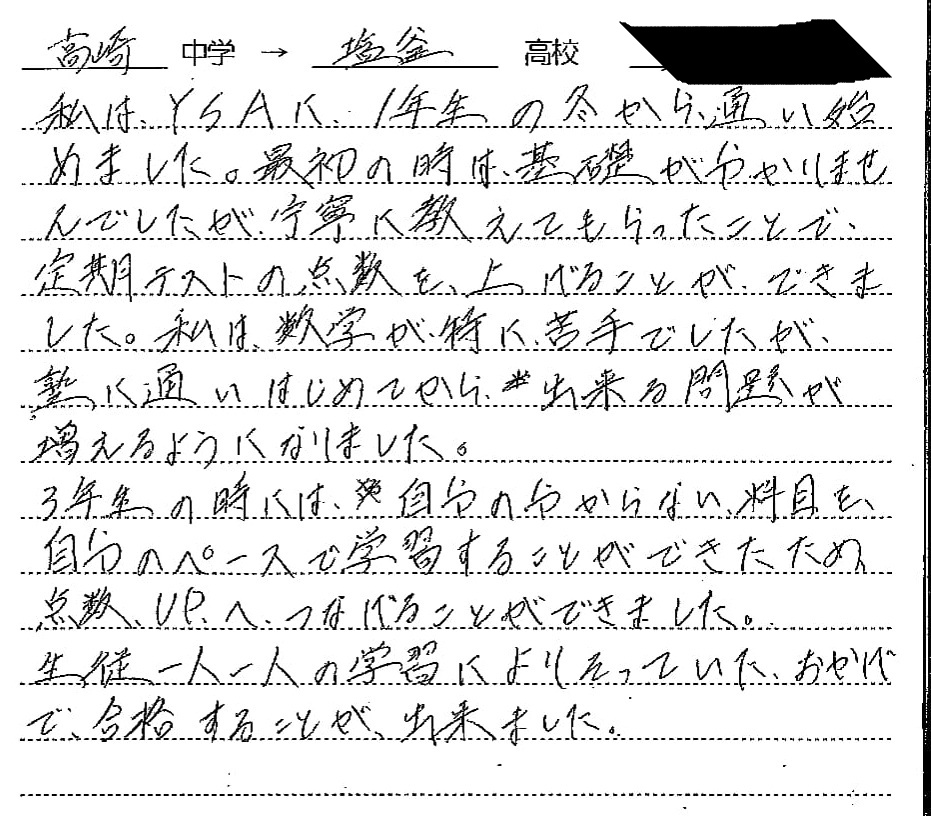 高崎 中学 → 塩釜 高校
私は、YSAに、1年生の冬から、通い始
めました。最初の時は、基礎が分かりませ
んでしたが、丁寧に教えてもらったことで、
定期テストの点数を、上げることが、できま
した。私は、数学が、特に、苦手でしたが、
塾に通いはじめてから、出来る問題が
増えるようになりました。
3年生の時には、自分の分からない、科目を、
自分のペースで学習することができたため
点数、UP、へ、つなげることができました。
生徒一人一人の学習によりそっていた、おかげ
で、合格することが、出来ました。